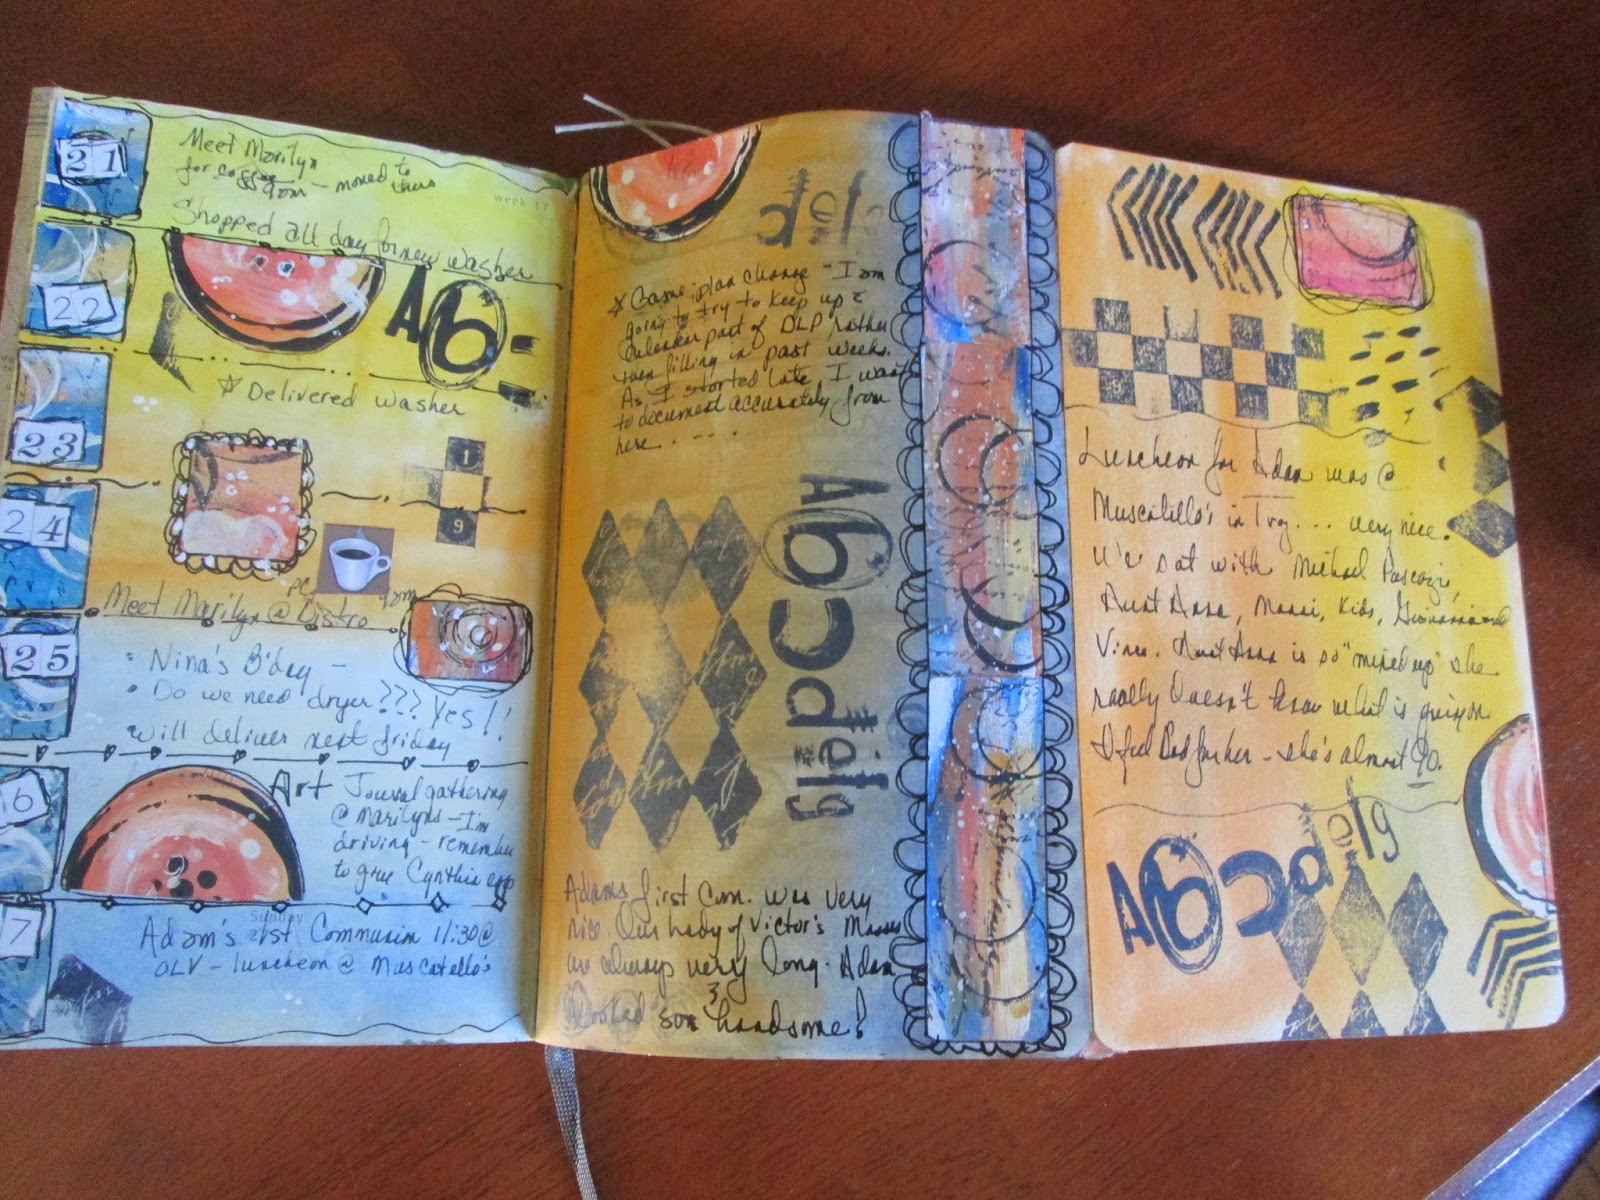 21
Meet Marilyn
for coffee
9am - moved to thurs
week 17
Shopped all day for new washer
22
Ab
☆ Delivered washer
23
1
9
24
Meet Marilyn @ Bistro 9am
25
Nina's B'day -
• Do we need dryer??? Yes!!
will deliver next friday
6
Art Journal gathering
@ Marilyns - I'm
driving - remember
to give Cynthia
7
Sunday
Adam's 1st Communion 11:30 @
OLV - luncheon @ Muscatello's
☆ Game plan change - I am
going to try to keep up
Calendar part of DLP rather
then filling in past weeks.
As I started late I want
to document accurately from
here . - - .
Abcdefg
Adams first Com. was very
nice. Our Lady of Victor's Masses
are always very long. Adam
looked soo handsome!
9
11
Luncheon for Adam was @
Muscatello's in Troy . . . very nice.
We sat with Michael
Aunt Anna, Kids,
Aunt Anna is so "mixed up" she
really doesn't know what is going on
I feel bad for her - she's almost 90.
Abcdefg